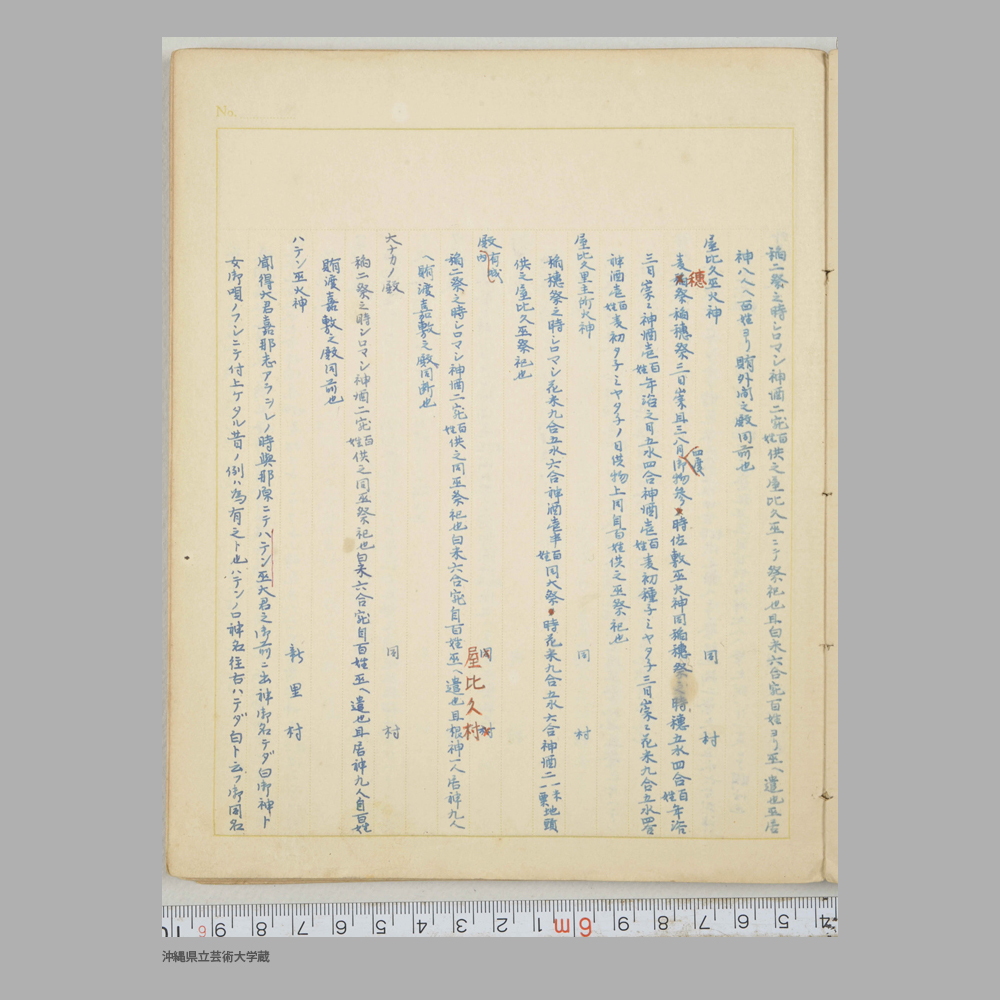 No.
稲二祭之時シロマシ神酒二完百姓供之屋比久巫ニテ祭祀也且白米六合完百姓ヨリ巫ヘ遣也巫居
神八人ヘ百姓ヨリ賄外間之殿同前也
屋比久巫火神 同 村
麦穂祭稲穂祭三日崇且三八月四度御物参ノ時佐敷巫火神同稲穂祭之時穂五水四合百姓年浴
三日崇ニ神酒壱百姓年浴之日五水四合神酒壱百姓麦初種子ミヤタチ三日崇ニ花米九合五水四合
神酒壱百姓麦初タチミヤタチノ日供物上同且百姓供之巫祭祀也
屋比久里主所火神 同 村
稲穂祭之時シロマシ花米九合五水六合神酒壱半百姓同大祭ノ時花米九合五水六合神酒二一米一粟地頭
供之屋比久巫祭祀也
殿 有城内 屋比久村
稲二祭之時シロマシ神酒二完百姓供之同巫祭祀也白米六合完自百姓巫ヘ遣也且根神一人居神九人
ヘ賄渡嘉敷之殿同断也
大ナカノ殿 同 村
稲二祭之時シロマシ神酒二完百姓供之同巫祭祀也白米六合完自百姓巫ヘ遣也且居神九人自百姓
賄渡嘉敷之殿同前也
ハテン巫火神 新 里 村
聞得大君嘉那志アラヲレノ時與那原ニテハテン巫大君之御前ニ出神御名テダ白御神ト
女御唄ノフシニテ付上ケタル昔ノ例ハ為有之ト也ハテンノロ神名往古ハテダ白ト云フ御同名
沖縄県立芸術大学蔵